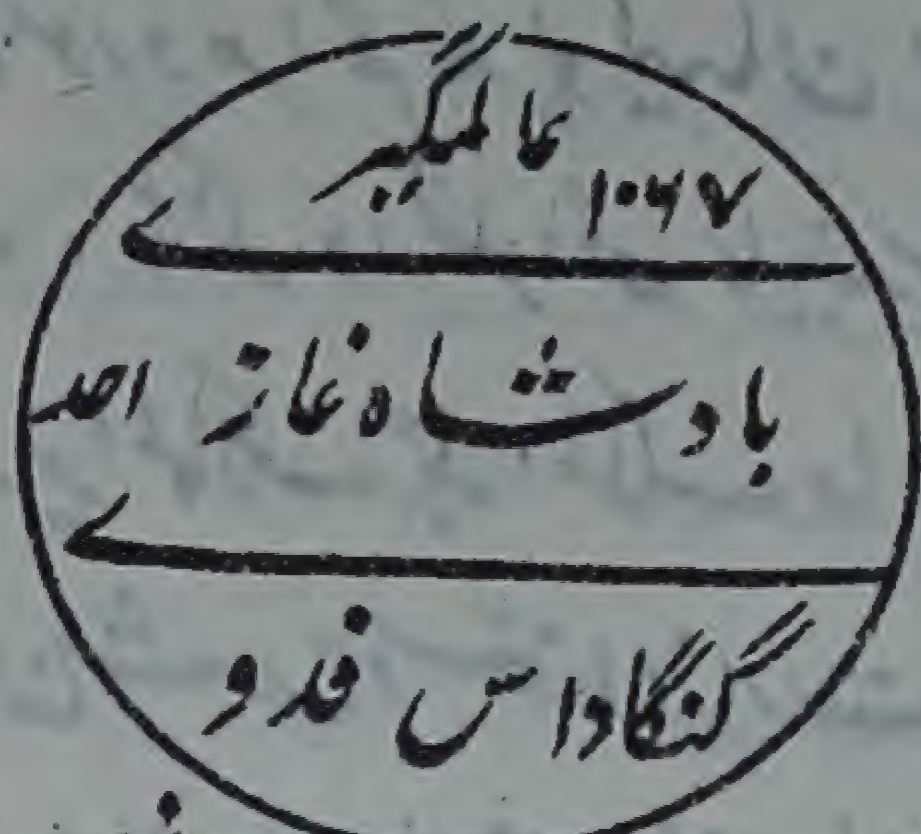 عالمگیر
۱۰۶۷
ے
بادشاہ غاز احد
ے
گنگاداس فدو